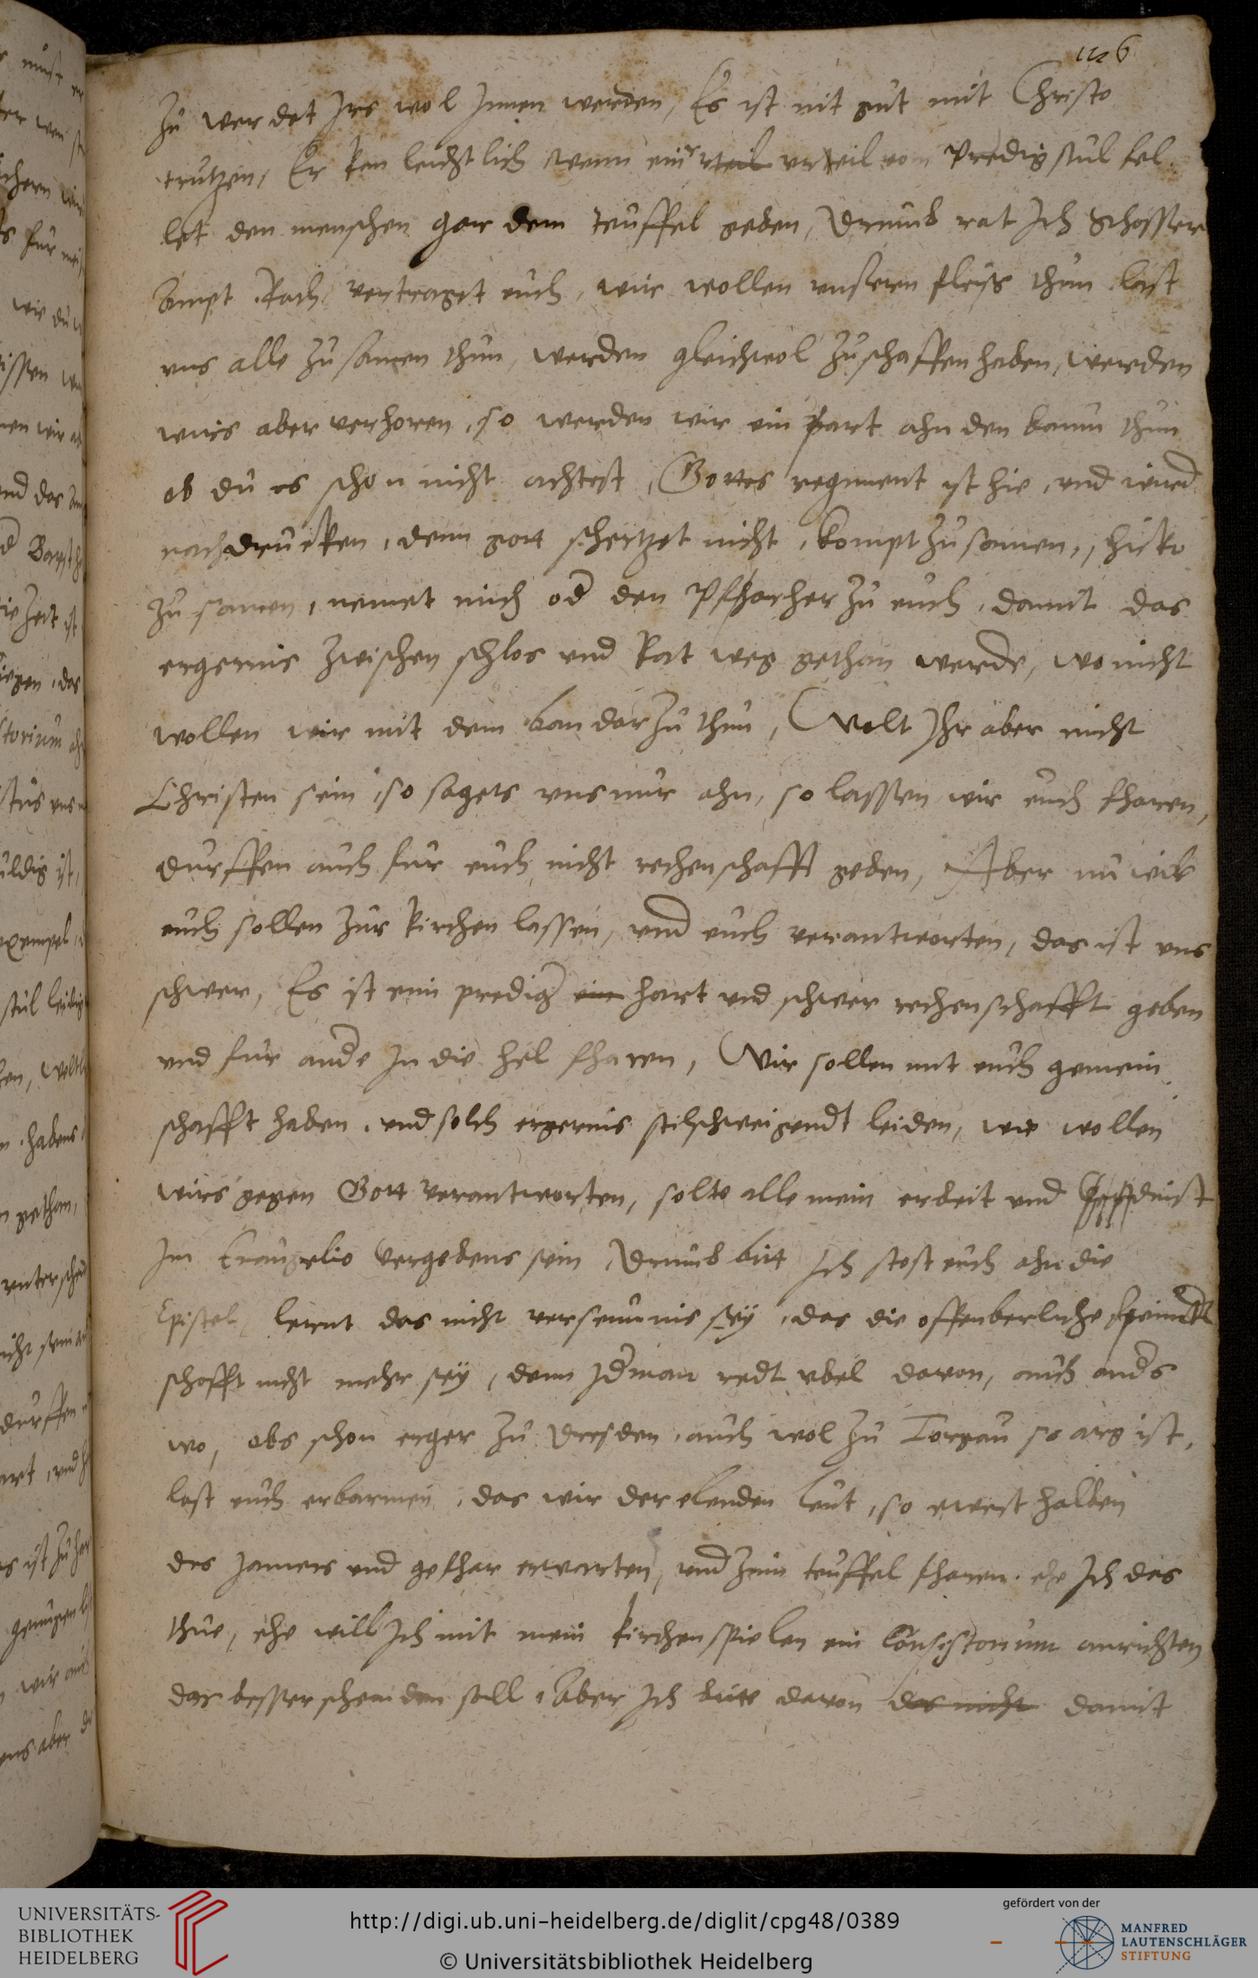 126
Zu werdet Irs wol Innen werden, Es ist nit gut mit Christo
trutzen, Er kan leichtlich wenn ein vrteil vrteil vom Predigstul fel
let den menschen gar dem teuffel geben, Drumb rat Ich Schosser
Ampt Rath vertraget euch, wir wollen unsern fleis thun last
uns alle zusamen thun, werden gleichwol zuschaffen haben, werden
wirs aber verhoren, so werden wir ein part ahn den baum thun
ob du es schon nicht achtest, Gottes regiment ist hie, und wird
nachdrucken, denn gott schertzet nicht, kompt zusamen, schickt
zusamen, nemet mich od den Pfharher zu euch, damit das
ergernis zwischen schlos und Rat weg gethan werde, wo nicht
wollen wir mit dem ban darzu thun, Wolt Ihr aber nicht
Christen sein, so sagets uns nur ahn, so lassen wir euch fharen,
durffen auch fur euch nicht rechenschafft geben, Aber nu wir
euch sollen zur kirchen lassen, und euch verantworten, das ist uns
schwer, Es ist eim prediger ein hart und schwer rechenschafft geben
und fur ande In die hel fharen, Wir sollen mit euch gemein
schafft haben, und solch ergernis stilschweigendt leiden, wie wollen
wirs gegen Gott verantworten, solte alle mein erbeit und dinst
Im Euangelio vergebens sein, Drumb bitt Ich stost euch ahn die
Epistel, lernt das nicht versaumnis sey, das die offenberliche feindt
schafft nicht mehr sey, denn Iderman redt vbel davon, auch anders
wo, obs schon erger zu Dresden, auch wol zu Torgau so arg ist,
last euch erbarmen, das wir der elenden leut, so ewert halben
des Jamers und gefhar erwarten, und zum teuffel fharen. ehe Ich das
thue, ehe will Ich mit mein kirchenspielen ein Consistorium anrichten
das besser scheinden soll, Aber Ich bitte davon das nicht damit
UNIVERSITÄTS-
BIBLIOTHEK
HEIDELBERG
http://digi.ub.uni-heidelberg.de/diglit/cpg48/0389
© Universitätsbibliothek Heidelberg
gefördert von der
MANFRED
LAUTENSCHLÄGER
STIFTUNG